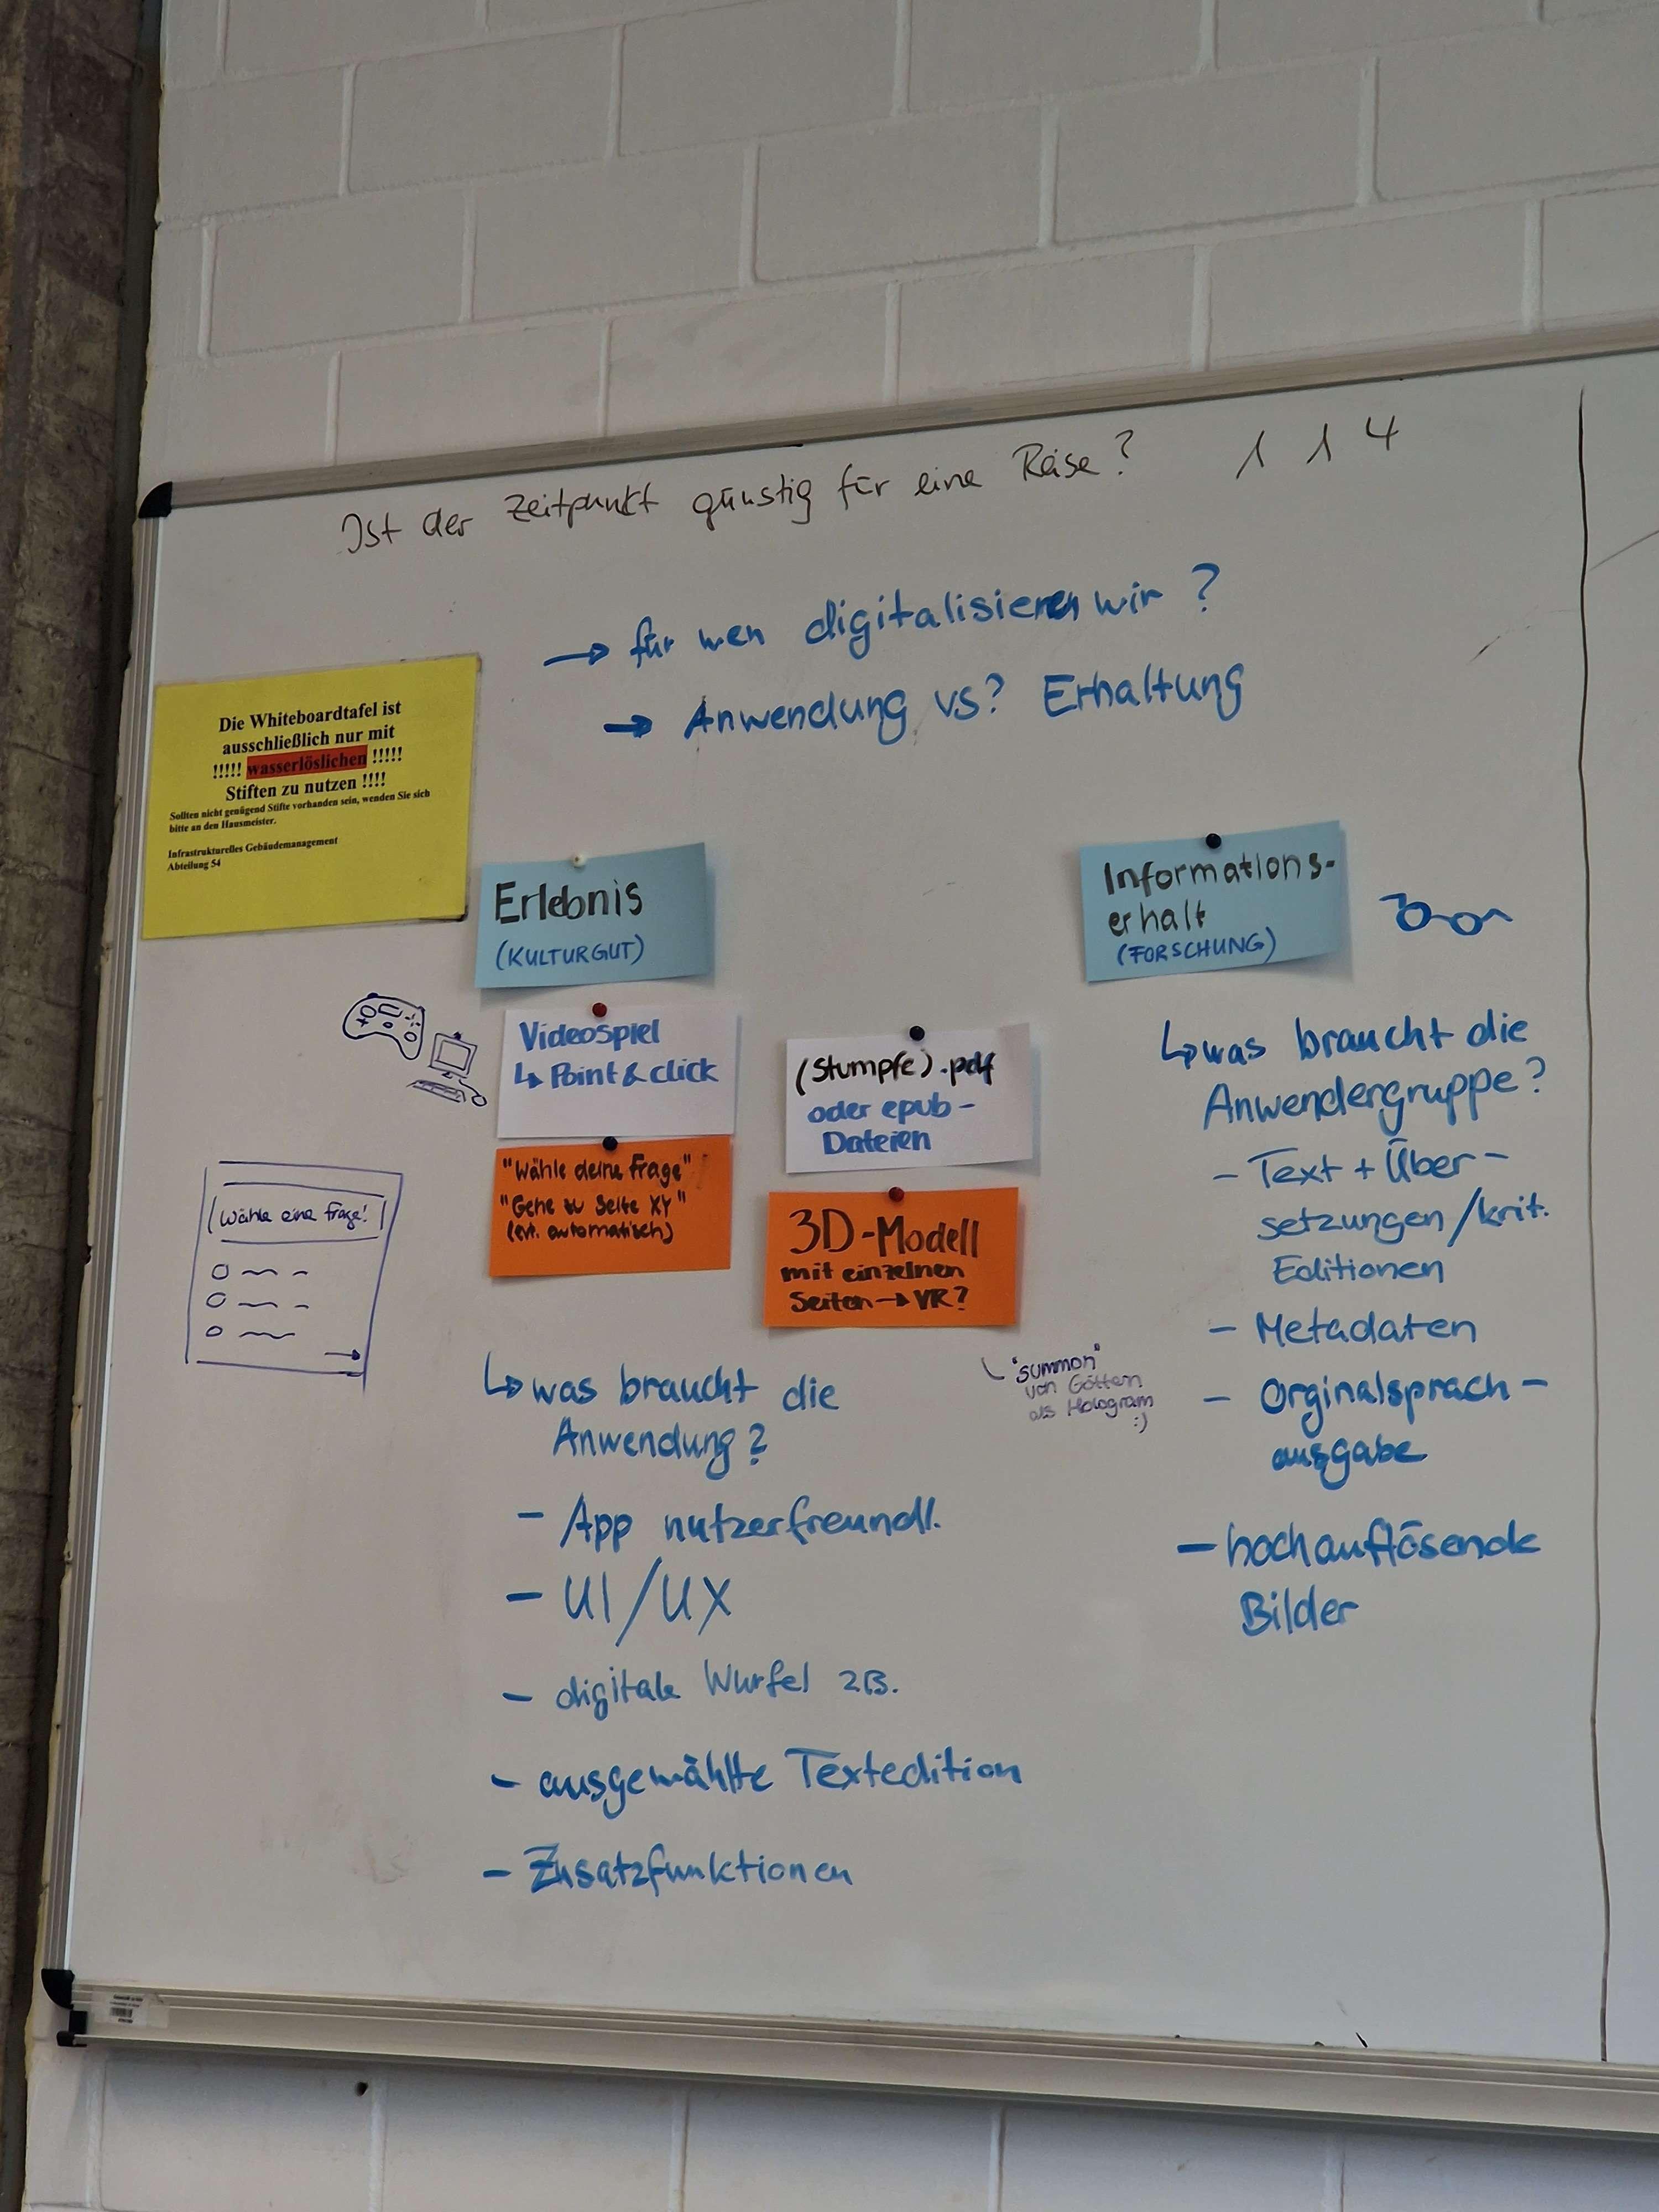 Ist der Zeitpunkt günstig für eine Reise? 1 1 4
→ für wen digitalisieren wir?
→ Anwendung vs? Erhaltung
Die Whiteboardtafel ist
ausschließlich nur mit
!!!!! wasserlöslichen !!!!!
Stiften zu nutzen !!!!
Sollten nicht genügend Stifte vorhanden sein, wenden Sie sich
bitte an den Hausmeister.
Infrastrukturelles Gebäudemanagement
Abteilung 54
Erlebnis
(KULTURGUT)
Videospiel
↳ Point & click
"Wähle deine Frage"
"Gehe zu Seite XY"
(evt. automatisch)
Wähle eine Frage!
(Stumpfe).pdf
oder epub-
Dateien
3D-Modell
mit einzelnen
Seiten → VR?
"summon"
von Göttern
als Hologram
:)
↳ was braucht die
Anwendung?
- App nutzerfreundl.
- UI/UX
- digitale Würfel z.B.
- ausgewählte Textedition
- Zusatzfunktionen
Informations-
erhalt
(FORSCHUNG)
↳ was braucht die
Anwendergruppe?
- Text + Über-
setzungen/krit.
Editionen
- Metadaten
- Orginalsprach-
ausgabe
- hochauflösende
Bilder